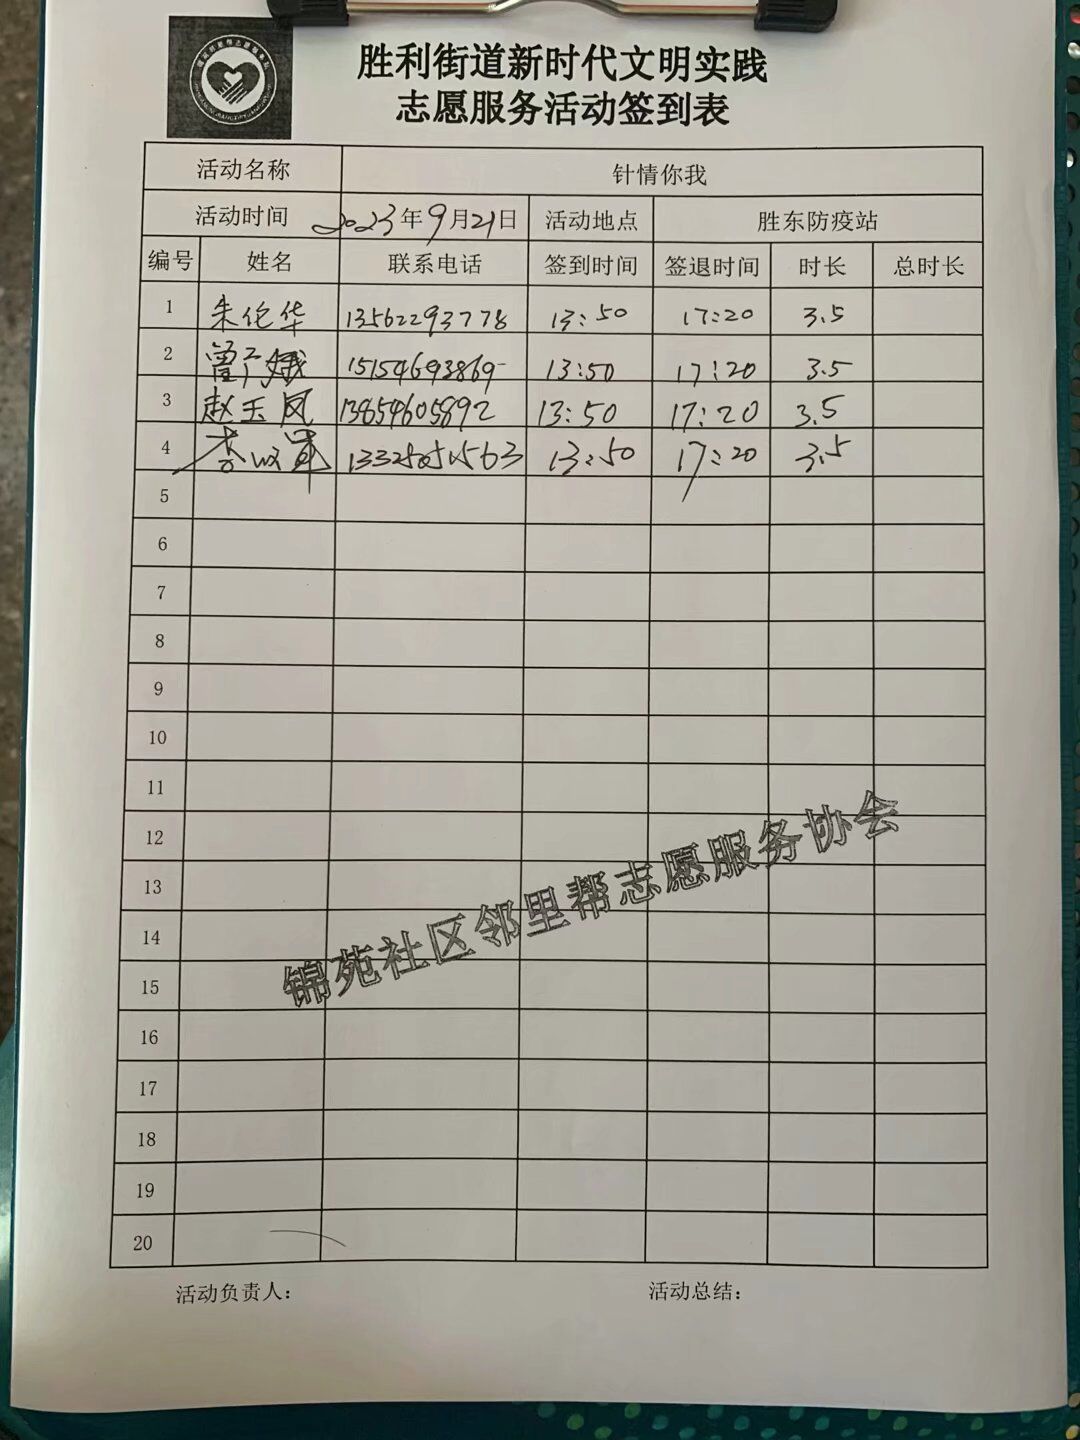 胜利街道新时代文明实践
志愿服务活动签到表
活动名称 针情你我
活动时间 2023年9月21日 活动地点 胜东防疫站
编号 姓名 联系电话 签到时间 签退时间 时长 总时长
1 朱伦华 13562293778 13:50 17:20 3.5
2 曾广娥 15154693869 13:50 17:20 3.5
3 赵玉凤 13854605892 13:50 17:20 3.5
4 13:50 17:20 3.5
5
6
7
8
9
10
11
12
13
14
15
16
17
18
19
20
锦苑社区邻里帮志愿服务协会
活动负责人: 活动总结: